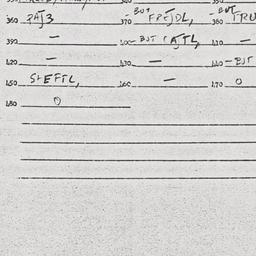 360 PAJ3 370 BUT FPEJDL, 380 - BUT TRU
390 — 400 - BUT CAJTL, 410 —
420 — 430 — 440 - BUT
450 SHEFTL, 460 — 470 0
480 0